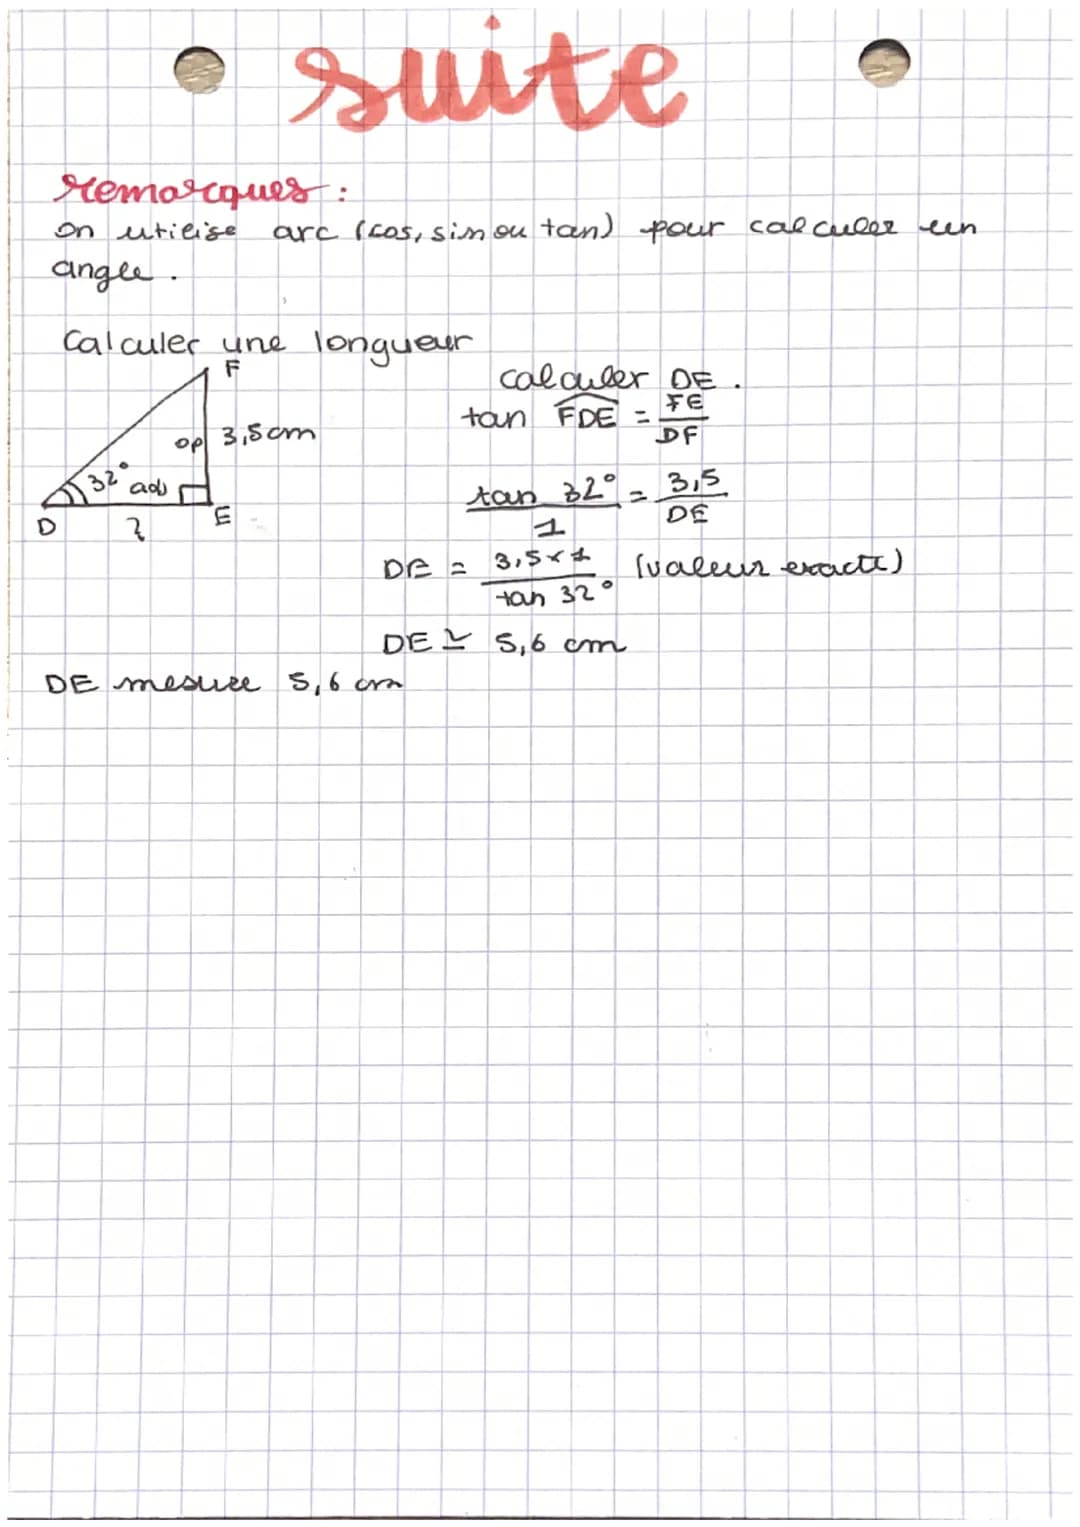 suite
remarques :
on utilise arc (cos, sin ou tan) pour calculer un
angle .
Calculer une longueur
F
op 3,5cm
32° adj
D ? E
calculer DE .
tan FDE = FE/DF
tan 32°/1 = 3,5/DE
DE = 3,5×1/tan 32° (valeur exacte)
DE ≃ 5,6 cm
DE mesure 5,6 cm